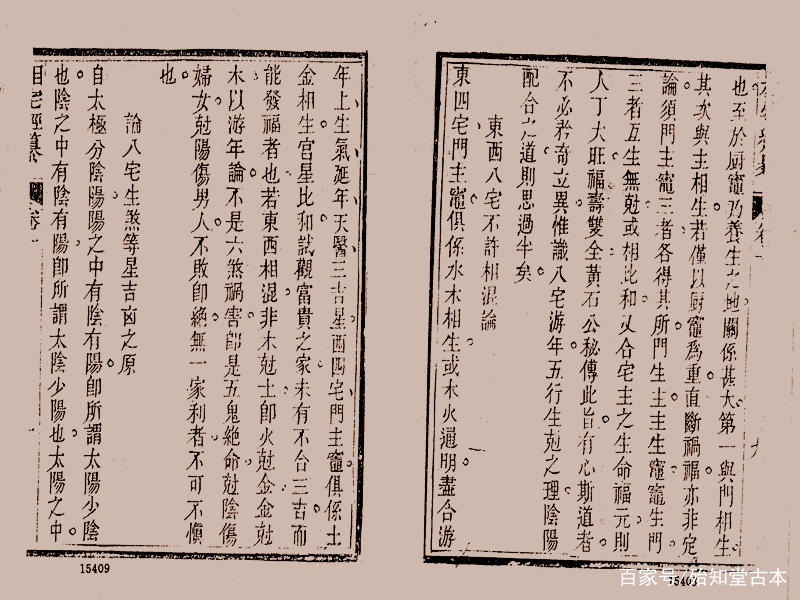 也至於厨竈乃養生之地關係甚大第一與門相生
其次與主相生若僅以厨竈為重直斷禍福亦非定
論須門主竈三者各得其所門生主主生竈竈生門
三者互生無尅或相比和又合宅主之生命福元則
人丁大旺福壽雙全黃石公秘傳此旨有心斯道者
不必矜奇立異惟識八宅游年五行生尅之理陰陽
配合之道則思過半矣
東西八宅不許相混論
東四宅門主竈俱係水木相生或木火通明盡合游
年上生氣延年天醫三吉星西四宅門主竈俱係土
金相生宫星比和試觀富貴之家未有不合三吉而
能發福者也若東西相混非木尅土卽火尅金金尅
木以游年論不是六煞禍害卽是五鬼絕命尅陰傷
婦女尅陽傷男人不敗卽絕無一家利者不可不慎
也
論八宅生煞等星吉凶之原
自太極分陰陽陽之中有陰有陽卽所謂太陽少陰
也陰之中有陰有陽卽所謂太陰少陽也太陽之中
陽宅經纂 卷一
15409
15409
百家号/殆知堂古本